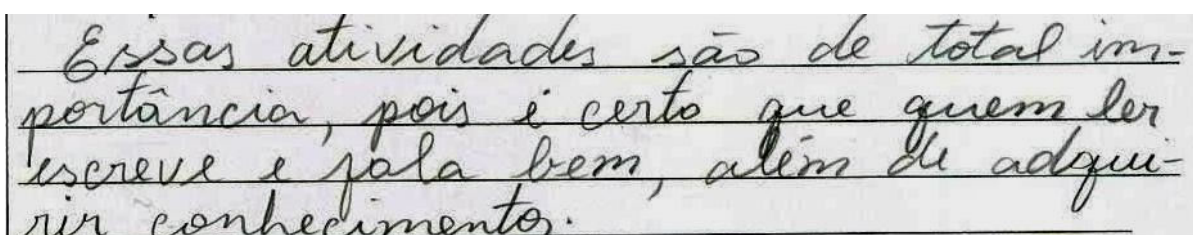 Essas atividades são de total im-
portância, pois é certo que quem ler
escreve e fala bem, além de adqui-
rir conhecimentos.